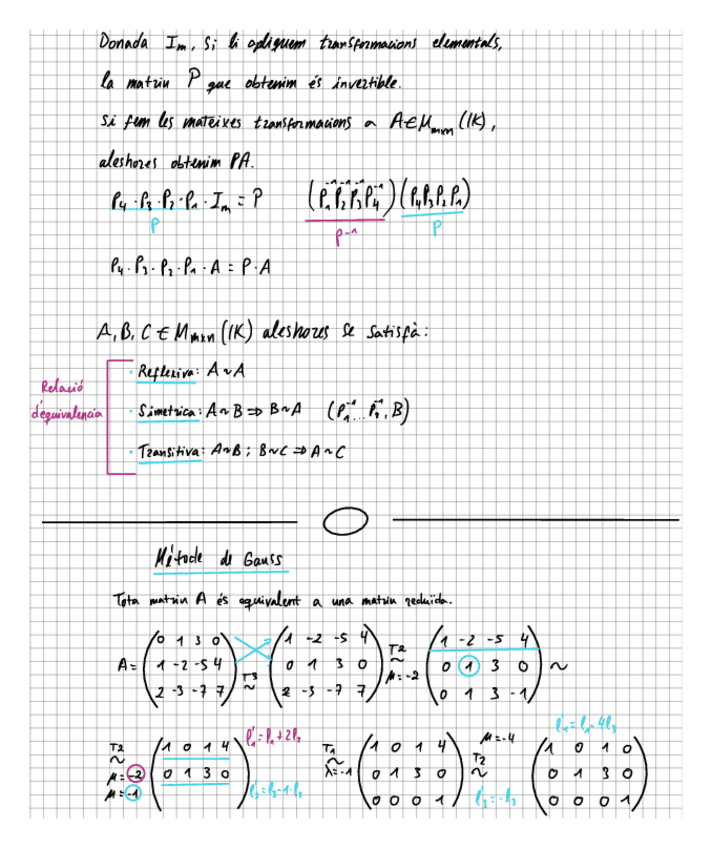 Donada Iₘ, si li apliquem transformacions elementals,
la matriu P que obtenim és invertible.
Si fem les mateixes transformacions a A∈Mₘₓₙ(IK),
aleshores obtenim PA.
P₄·P₃·P₂·P₁·Iₘ = P (P₁⁻¹P₂⁻¹P₃⁻¹P₄⁻¹)(P₄P₃P₂P₁)
P P⁻¹ P
P₄·P₃·P₂·P₁·A = P·A
A, B, C ∈ Mₘₓₙ(IK) aleshores se satisfà:
Relació d'equivalencia
· Reflexiva: A∼A
· Simetrica: A∼B ⇒ B∼A (P₁⁻¹... P₂⁻¹, B)
· Transitiva: A∼B; B∼C ⇒ A∼C
Mètode de Gauss
Tota matriu A és equivalent a una matriu reduïda.
A = (0 1 3 0) (1 -2 -5 4) (1 -2 -5 4)
(1 -2 -5 4) T3 ∼ (0 1 3 0) T2 ∼ μ=-2 (0 1 3 0) ∼
(2 -3 -7 7) (2 -3 -7 7) (0 1 3 -1)
l'₁=l₁+2l₂ l'₁=l₁-4l₃
T2 ∼ (1 0 1 4) T1 ∼ (1 0 1 4) μ=-4 (1 0 1 0)
μ=-2 (0 1 3 0) λ=-1 (0 1 3 0) T2 ∼ (0 1 3 0)
μ=-1 l'₃=l₃-1·l₂ (0 0 0 1) l'₃=-l₃ (0 0 0 1)